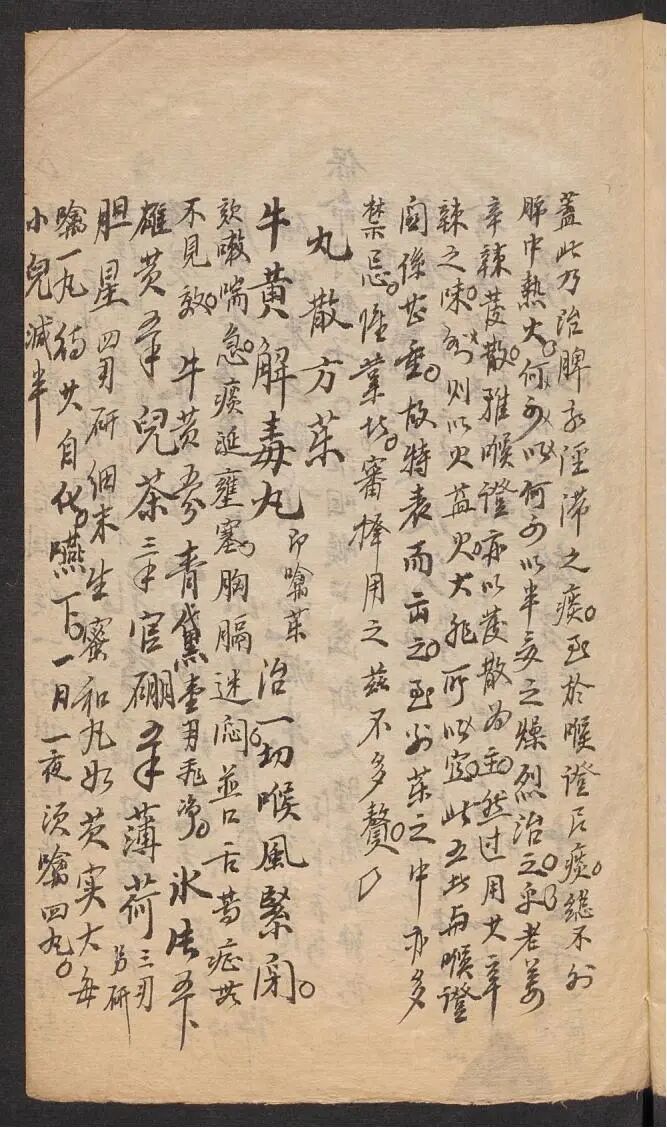 蓋此乃治脾家溼滞之痰。至於喉證之痰。総不外
肺中熱火。何可以何可以半夏之燥烈治之乎。老姜
辛辣發散。雅喉證亦以發散为主。然过用其辛
辣之味。則以火益火大非所以宜。此五此与喉證
関係甚重。故特表而出之。至於薬之中亦多
禁忌。惟業者。審擇用之茲不多贅。
丸散方薬
牛黄解毒丸 即噙薬 治一切喉風緊闭。
欬嗽喘急。痰涎壅塞。胸膈迷悶。並口舌等症其
不見效。牛黄五分青黛壹刃飛净。氷片五卜
雄黄半児茶三官硼半薄荷三刃另研
胆星四刃研細末生蜜和丸如芡实大每
噙一丸待其自化。嚥下。一日一夜须噙四丸。
小兒減半